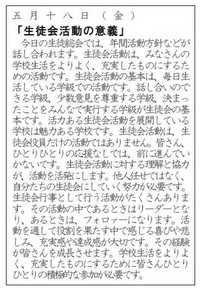 五月十八日（金）
「生徒会活動の意義」
　今日の生徒総会では、年間活動方針などが
話し合われます。生徒会活動は、みなさんの
学校生活をよりよく、充実したものにするた
めの活動です。生徒会活動の基本は、毎日生
活している学級での活動です。話し合いので
きる学級、少数意見を尊重する学級、決まっ
たことをみんなで実行する学級が生徒会の基
本です。活力ある生徒会活動を展開している
学校は魅力ある学校です。生徒会活動は、生
徒会役員だけの活動ではありません。皆さん
ひとりひとりの応援なしでは、前に進んでい
かないです。生徒会活動に対する理解と協力
が、活動を活発にします。他人任せではなく、
自分たちの生徒会にしていく努力が必要です。
生徒会行事として行う活動がたくさんありま
す。その活動の中であるときはリーダーとな
り、あるときは、フォローになります。活
動を通して役割を果たす中で感じる喜びや悲
しみ、充実感や達成感が大切です。その経験
が皆さんを成長させます。学校生活をよりよ
く、充実したものにするために皆さんひとり
ひとりの積極的な参加が必要です。